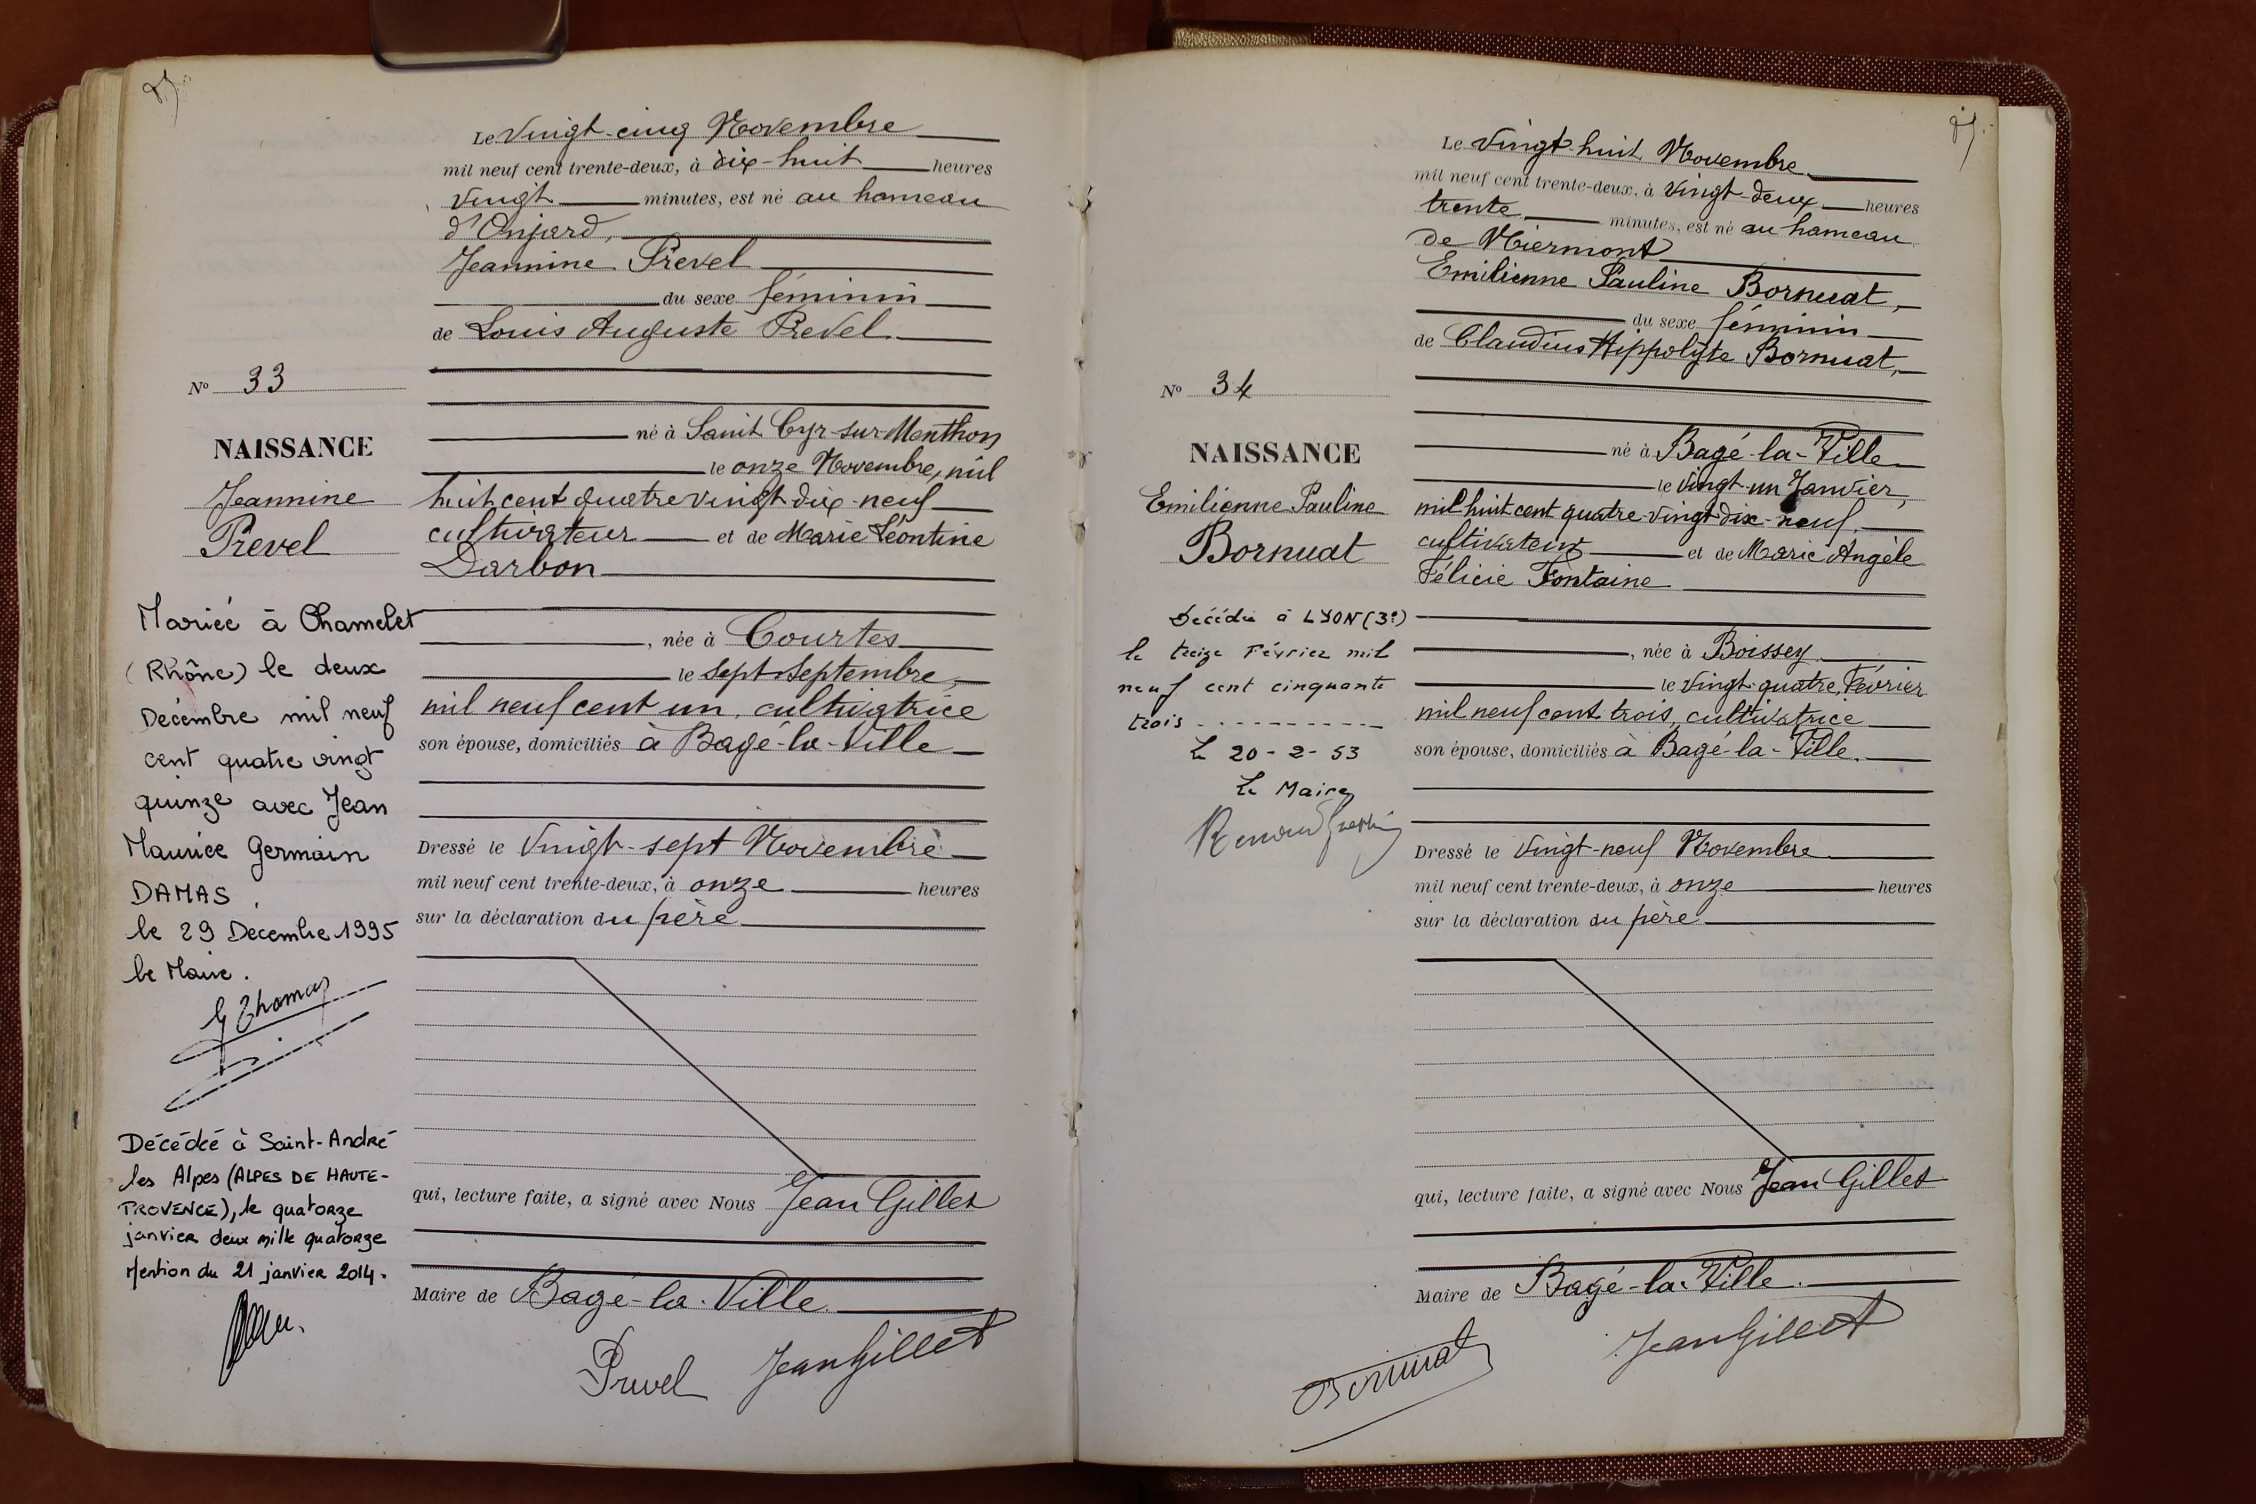 Le Vingt-cinq Novembre
mil neuf cent trente-deux, à dix-huit heures
vingt minutes, est né au hameau
d'Onjard,
Jeannine Prevel
du sexe féminin
de Louis Auguste Prevel
né à Saint Cyr-sur-Menthon
le onze Novembre, mil
huit cent quatre vingt dix-neuf
cultivateur et de Marie Léontine
Darbon
, née à Courtes
le sept septembre,
mil neuf cent un, cultivatrice
son épouse, domiciliés à Bagé-la-Ville
Dressé le Vingt-sept Novembre
mil neuf cent trente-deux, à onze heures
sur la déclaration du père
qui, lecture faite, a signé avec Nous Jean Gillet
Maire de Bagé-la-Ville
Prevel Jean Gillet
No 33
NAISSANCE
Jeannine
Prevel
Mariée à Chamelet
(Rhône) le deux
Décembre mil neuf
cent quatre vingt
quinze avec Jean
Maurice Germain
DAMAS
le 29 Décembre 1995
le Maire.
G Thomas
Décédée à Saint-André
les Alpes (ALPES DE HAUTE-
PROVENCE), le quatorze
janvier deux mille quatorze
Mention du 21 janvier 2014.
Le Vingt-huit Novembre
mil neuf cent trente-deux, à vingt-deux heures
trente minutes, est né au hameau
de Niermont
Emilienne Pauline Bornuat,
du sexe féminin
de Claudius Hippolyte Bornuat,
né à Bagé-la-Ville
le vingt-un Janvier,
mil huit cent quatre-vingt-dix-neuf.
cultivateur et de Marie Angèle
Félicie Fontaine
, née à Boissey
le vingt-quatre Février
mil neuf cent trois, cultivatrice
son épouse, domiciliés à Bagé-la-Ville.
Dressé le vingt-neuf Novembre
mil neuf cent trente-deux, à onze heures
sur la déclaration du père
qui, lecture faite, a signé avec Nous Jean Gillet
Maire de Bagé-la-Ville.
Bornuat Jean Gillet
No 34
NAISSANCE
Emilienne Pauline
Bornuat
Décédée à LYON (3e)
le treize Février mil
neuf cent cinquante
trois
Le 20-2-53
Le Maire